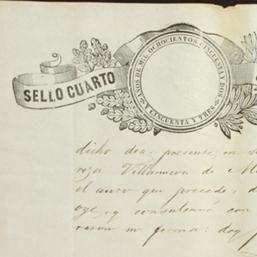 SELLO CUARTO
AÑOS DE MIL OCHOCIENTOS CINCUENTA Y DOS
Y CINCUENTA Y TRES
dicho dia, presente, en su
Villanueva de
el auto que precede; d
oye, y consultará con
en forma: doy f